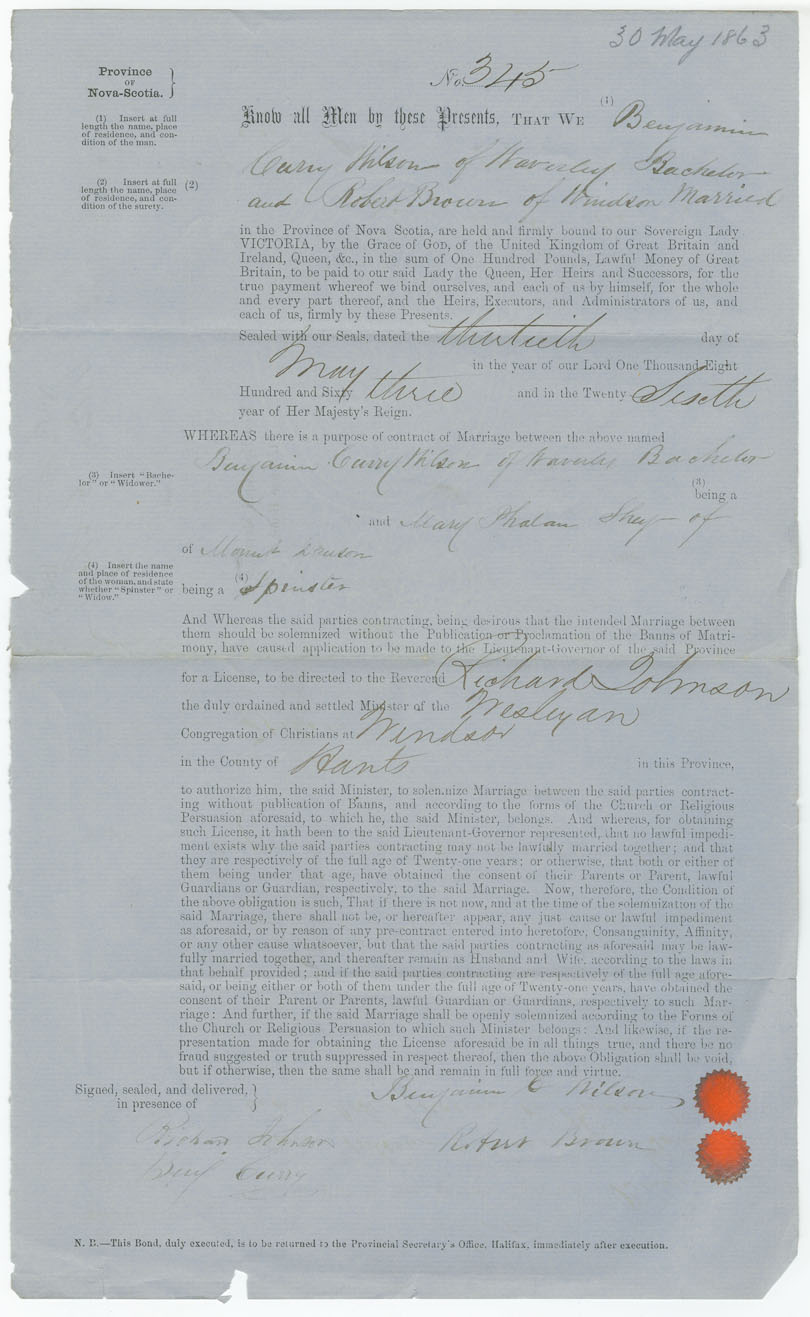 30 May 1863
Province
OF
Nova-Scotia.
No. 345
(1) Insert at full
length the name, place
of residence, and con-
dition of the man.
Know all Men by these Presents, THAT WE (1) Benjamin
(2) Insert at full
length the name, place
of residence, and con-
dition of the surety.
Curry Wilson of Waverley Bachelor
(2) and Robert Brown of Windson Married
in the Province of Nova Scotia, are held and firmly bound to our Sovereign Lady
VICTORIA, by the Grace of GOD, of the United Kingdom of Great Britain and
Ireland, Queen, &c., in the sum of One Hundred Pounds, Lawful Money of Great
Britain, to be paid to our said Lady the Queen, Her Heirs and Successors, for the
true payment whereof we bind ourselves, and each of us by himself, for the whole
and every part thereof, and the Heirs, Executors, and Administrators of us, and
each of us, firmly by these Presents.
Sealed with our Seals, dated the thirtieth day of
May in the year of our Lord One Thousand Eight
Hundred and Sixty three and in the Twenty Sixth
year of Her Majesty's Reign.
WHEREAS there is a purpose of contract of Marriage between the above named
Benjamin Curry Wilson of Waverley Bachelor
(3) Insert "Bache-
lor" or "Widower."
(3)
being a
and Mary Phalan Shey of
of Mount
(4) Insert the name
and place of residence
of the woman, and state
whether "Spinster" or
"Widow."
being a (4) Spinster
And Whereas the said parties contracting, being desirous that the intended Marriage between
them should be solemnized without the Publication or Proclamation of the Banns of Matri-
mony, have caused application to be made to the Lieutenant-Governor of the said Province
for a License, to be directed to the Reverend Richard Johnson
the duly ordained and settled Minister of the Wesleyan
Congregation of Christians at Windsor
in the County of Hants in this Province,
to authorize him, the said Minister, to solemnize Marriage between the said parties contract-
ing without publication of Banns, and according to the forms of the Church or Religious
Persuasion aforesaid, to which he, the said Minister, belongs. And whereas, for obtaining
such License, it hath been to the said Lieutenant-Governor represented, that no lawful impedi-
ment exists why the said parties contracting may not be lawfully married together; and that
they are respectively of the full age of Twenty-one years; or otherwise, that both or either of
them being under that age, have obtained the consent of their Parents or Parent, lawful
Guardians or Guardian, respectively, to the said Marriage. Now, therefore, the Condition of
the above obligation is such, That if there is not now, and at the time of the solemnization of the
said Marriage, there shall not be, or hereafter appear, any just cause or lawful impediment
as aforesaid, or by reason of any pre-contract entered into heretofore, Consanguinity, Affinity,
or any other cause whatsoever, but that the said parties contracting as aforesaid may be law-
fully married together, and thereafter remain as Husband and Wife, according to the laws in
that behalf provided; and if the said parties contracting are respectively of the full age afore-
said, or being either or both of them under the full age of Twenty-one years, have obtained the
consent of their Parent or Parents, lawful Guardian or Guardians, respectively to such Mar-
riage: And further, if the said Marriage shall be openly solemnized according to the Forms of
the Church or Religious Persuasion to which such Minister belongs: And likewise, if the re-
presentation made for obtaining the License aforesaid be in all things true, and there be no
fraud suggested or truth suppressed in respect thereof, then the above Obligation shall be void,
but if otherwise, then the same shall be and remain in full force and virtue.
Signed, sealed, and delivered,
in presence of
Benjamin C Wilson
Johnson
Robert Brown
Benj Curry
N. B.—This Bond, duly executed, is to be returned to the Provincial Secretary's Office, Halifax, immediately after execution.